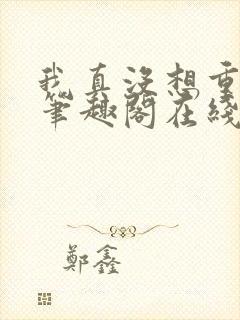 我真没想重
笔趣阁在线
鄭鑫